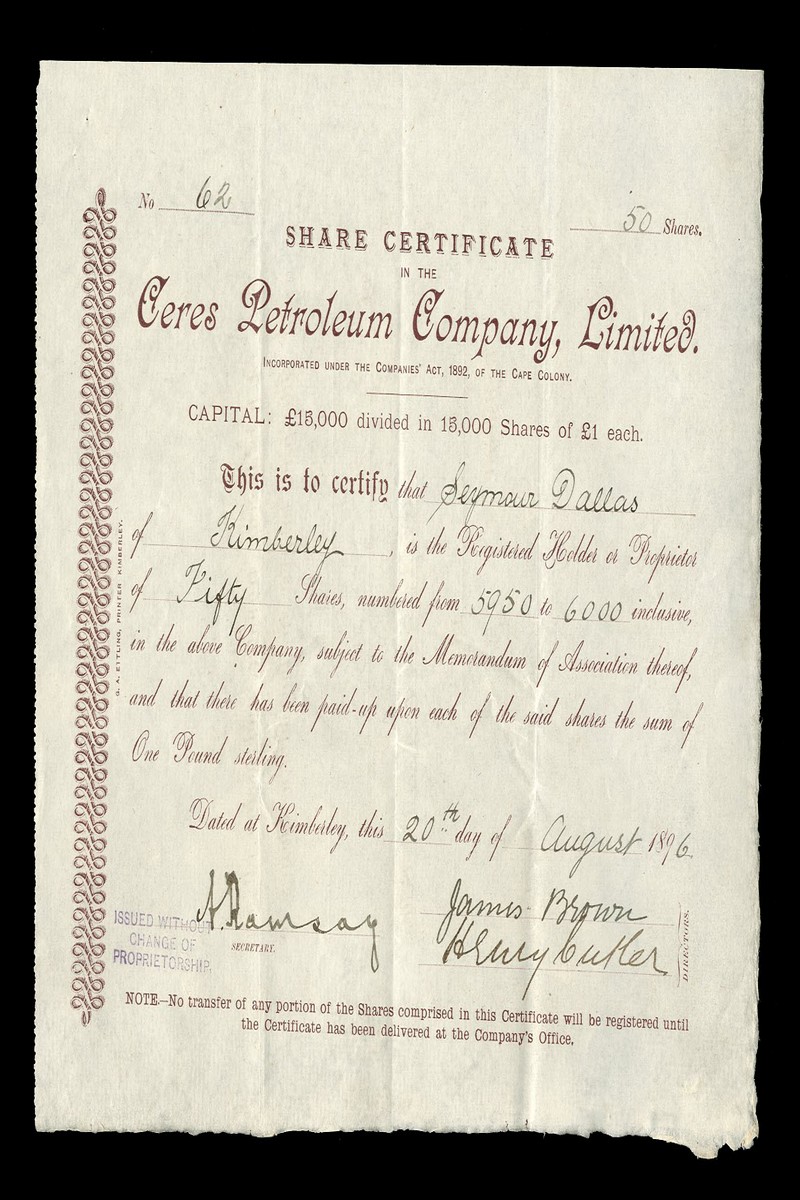 No 62
50 Shares.
SHARE CERTIFICATE
IN THE
Ceres Petroleum Company, Limited.
INCORPORATED UNDER THE COMPANIES' ACT, 1892, OF THE CAPE COLONY.
CAPITAL: £15,000 divided in 15,000 Shares of £1 each.
This is to certify that Seymour Dallas
of Kimberley, is the Registered Holder or Proprietor
of Fifty Shares, numbered from 5950 to 6000 inclusive,
in the above Company, subject to the Memorandum of Association thereof,
and that there has been paid-up upon each of the said shares the sum of
One Pound sterling.
Dated at Kimberley, this 20th day of August 1896
A. Ramsay
SECRETARY.
James Brown
Henry Cutler
DIRECTORS.
ISSUED WITHOUT
CHANGE OF
PROPRIETORSHIP.
NOTE.—No transfer of any portion of the Shares comprised in this Certificate will be registered until
the Certificate has been delivered at the Company's Office.
G. A. ETTLING, PRINTER KIMBERLEY.